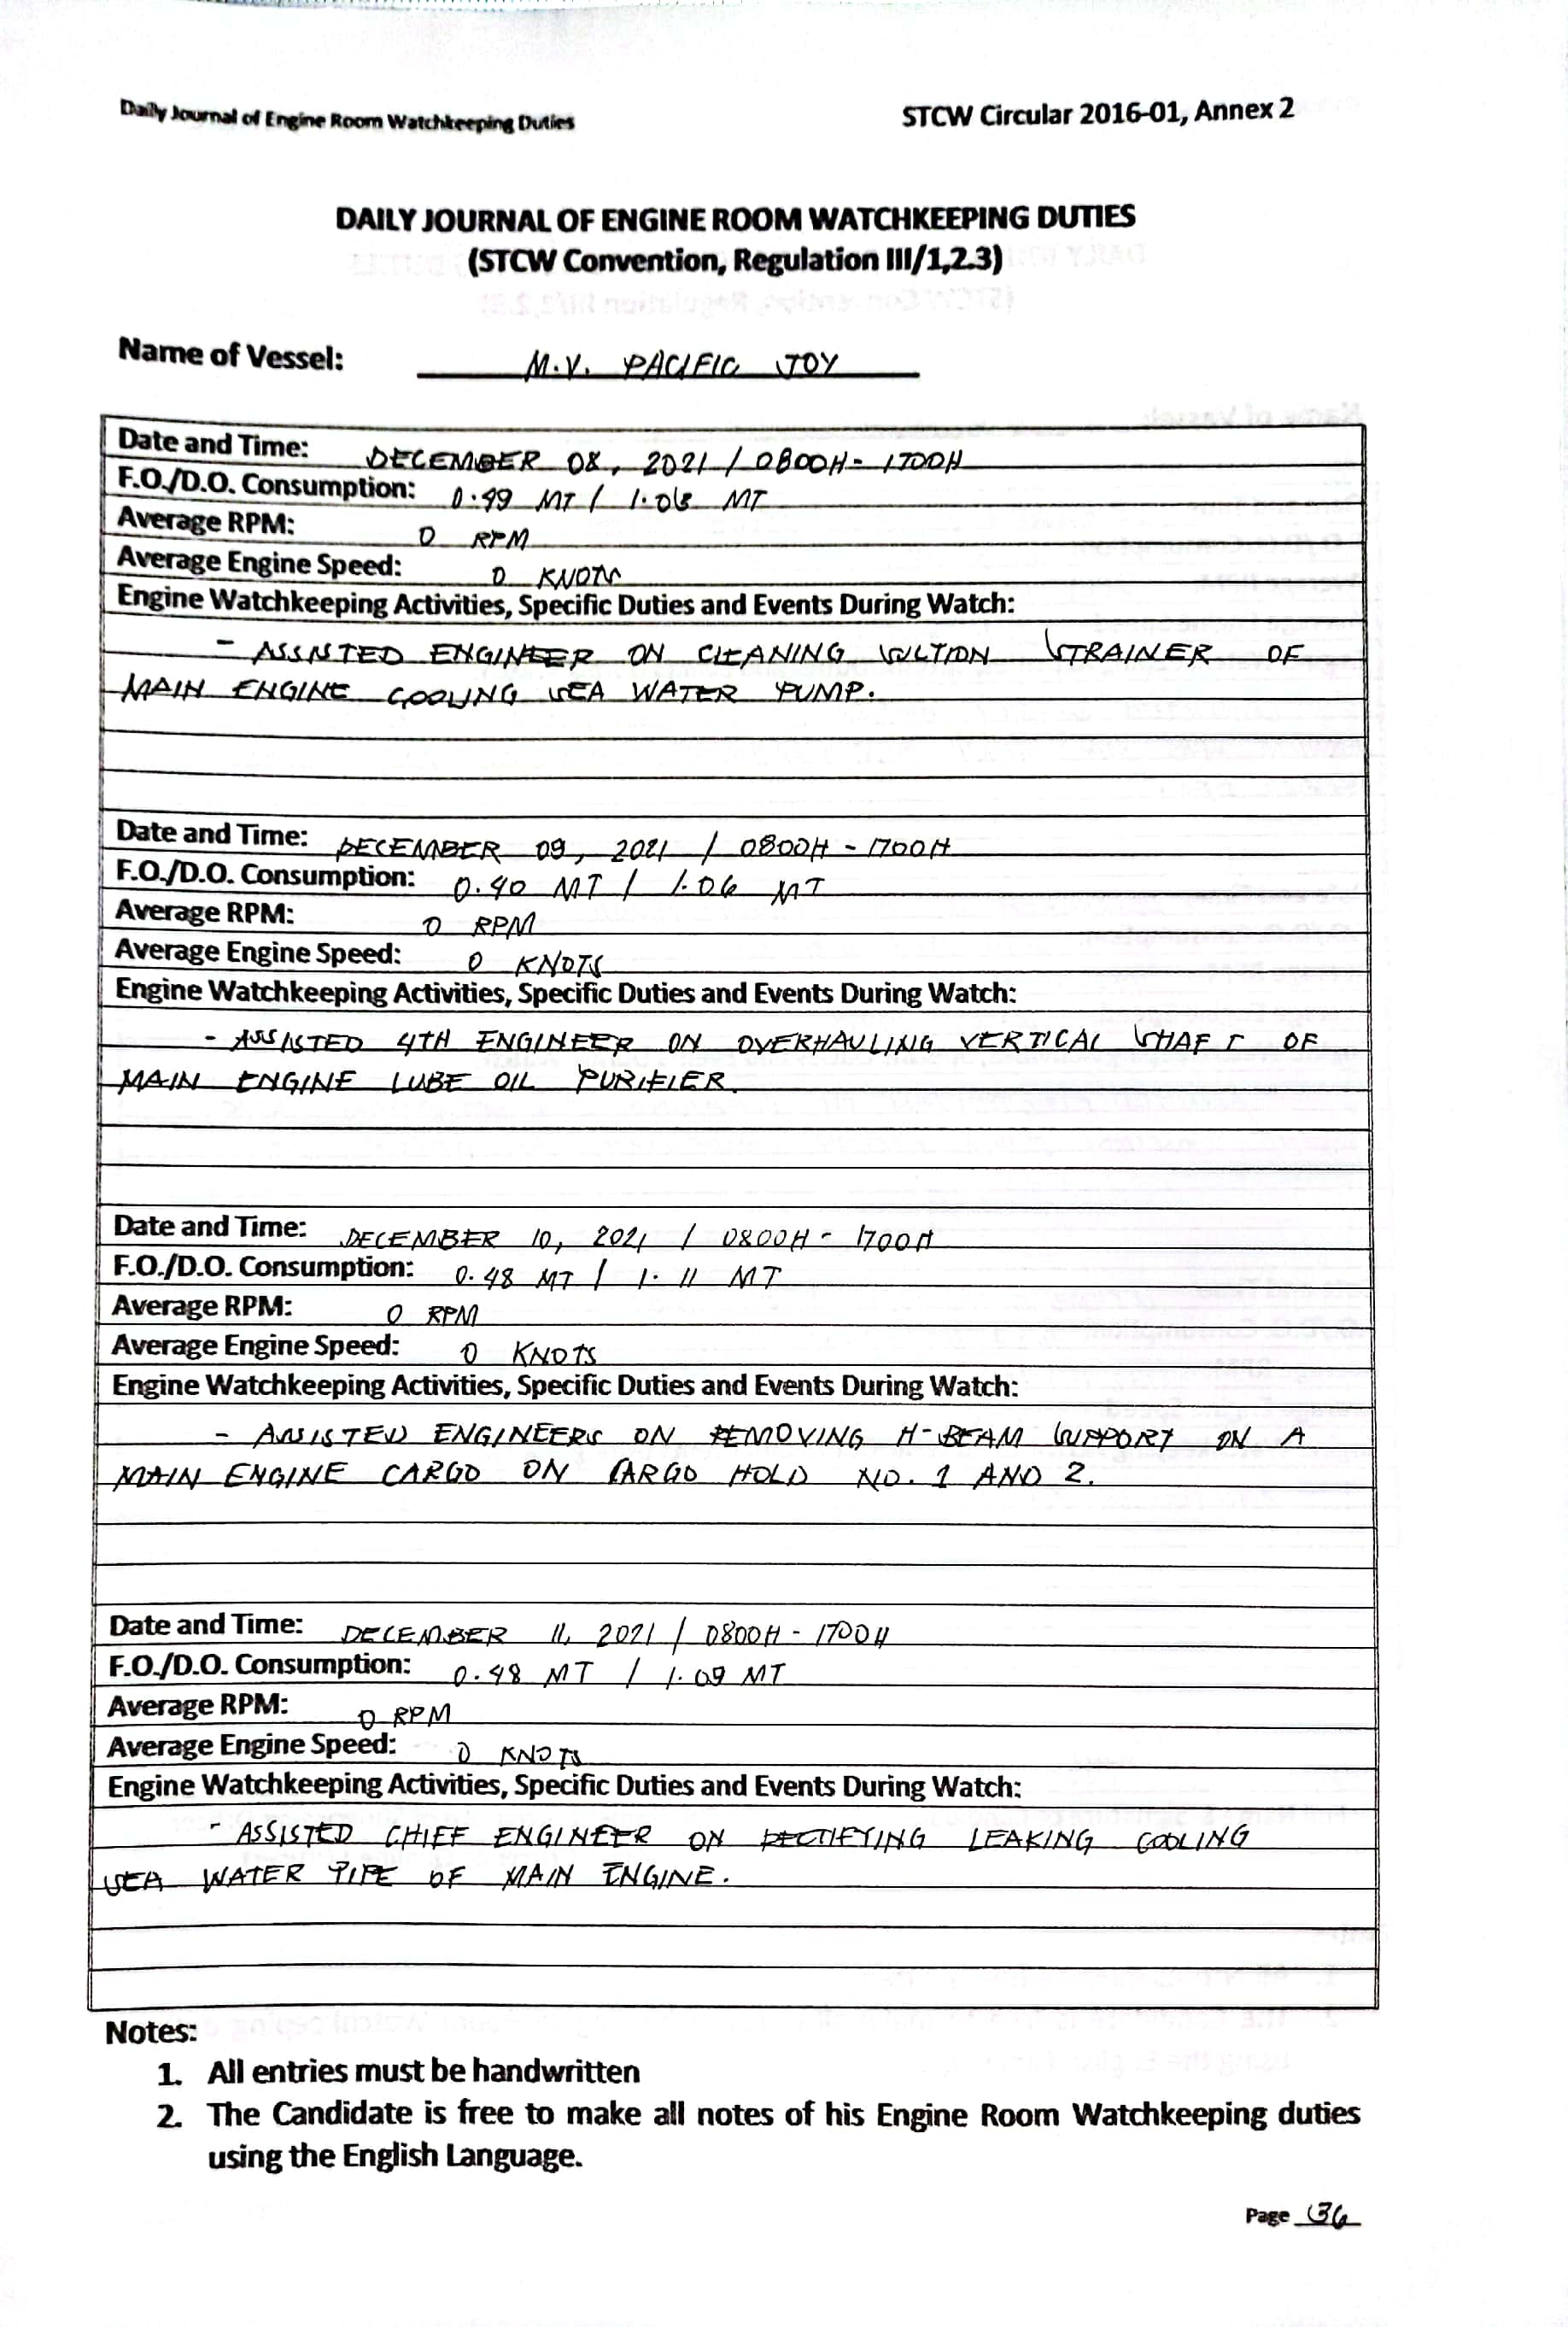 Daily Journal of Engine Room Watchkeeping Duties
STCW Circular 2016-01, Annex 2
DAILY JOURNAL OF ENGINE ROOM WATCHKEEPING DUTIES
(STCW Convention, Regulation III/1,2.3)
Name of Vessel: M.V. PACIFIC JOY
Date and Time: DECEMBER 08, 2021 / 0800H - 1700H
F.O./D.O. Consumption: 0.49 MT / MT
Average RPM: 0 RPM
Average Engine Speed: 0 KNOTS
Engine Watchkeeping Activities, Specific Duties and Events During Watch:
- ASSISTED ENGINEER ON CLEANING SUCTION STRAINER OF
MAIN ENGINE COOLING SEA WATER PUMP.
Date and Time: DECEMBER 09, 2021 / 0800H - 1700H
F.O./D.O. Consumption: 0.40 MT / 1.06 MT
Average RPM: 0 RPM
Average Engine Speed: 0 KNOTS
Engine Watchkeeping Activities, Specific Duties and Events During Watch:
- ASSISTED 4TH ENGINEER ON OVERHAULING VERTICAL SHAFT OF
MAIN ENGINE LUBE OIL PURIFIER.
Date and Time: DECEMBER 10, 2021 / 0800H - 1700H
F.O./D.O. Consumption: 0.48 MT / 1.11 MT
Average RPM: 0 RPM
Average Engine Speed: 0 KNOTS
Engine Watchkeeping Activities, Specific Duties and Events During Watch:
- ASSISTED ENGINEERS ON REMOVING H-BEAM SUPPORT ON A
MAIN ENGINE CARGO ON CARGO HOLD NO. 1 AND 2.
Date and Time: DECEMBER 11, 2021 / 0800H - 1700H
F.O./D.O. Consumption: 0.48 MT / 1.09 MT
Average RPM: 0 RPM
Average Engine Speed: 0 KNOTS
Engine Watchkeeping Activities, Specific Duties and Events During Watch:
- ASSISTED CHIEF ENGINEER ON RECTIFYING LEAKING COOLING
SEA WATER PIPE OF MAIN ENGINE.
Notes:
1. All entries must be handwritten
2. The Candidate is free to make all notes of his Engine Room Watchkeeping duties
using the English Language.
Page 36